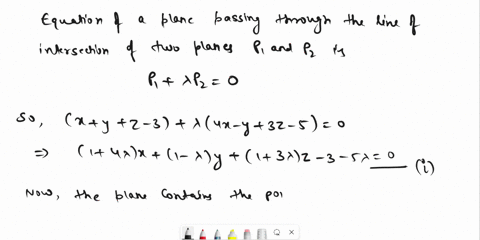 Equation of a plane passing through the line of
intersection of two planes P₁ and P₂ is
P₁ + λP₂ = 0
So, (x+y+z-3) + λ(4x-y+3z-5) = 0
⇒ (1+4λ)x + (1-λ)y + (1+3λ)z -3-5λ = 0 (i)
Now, the plane contains the poi